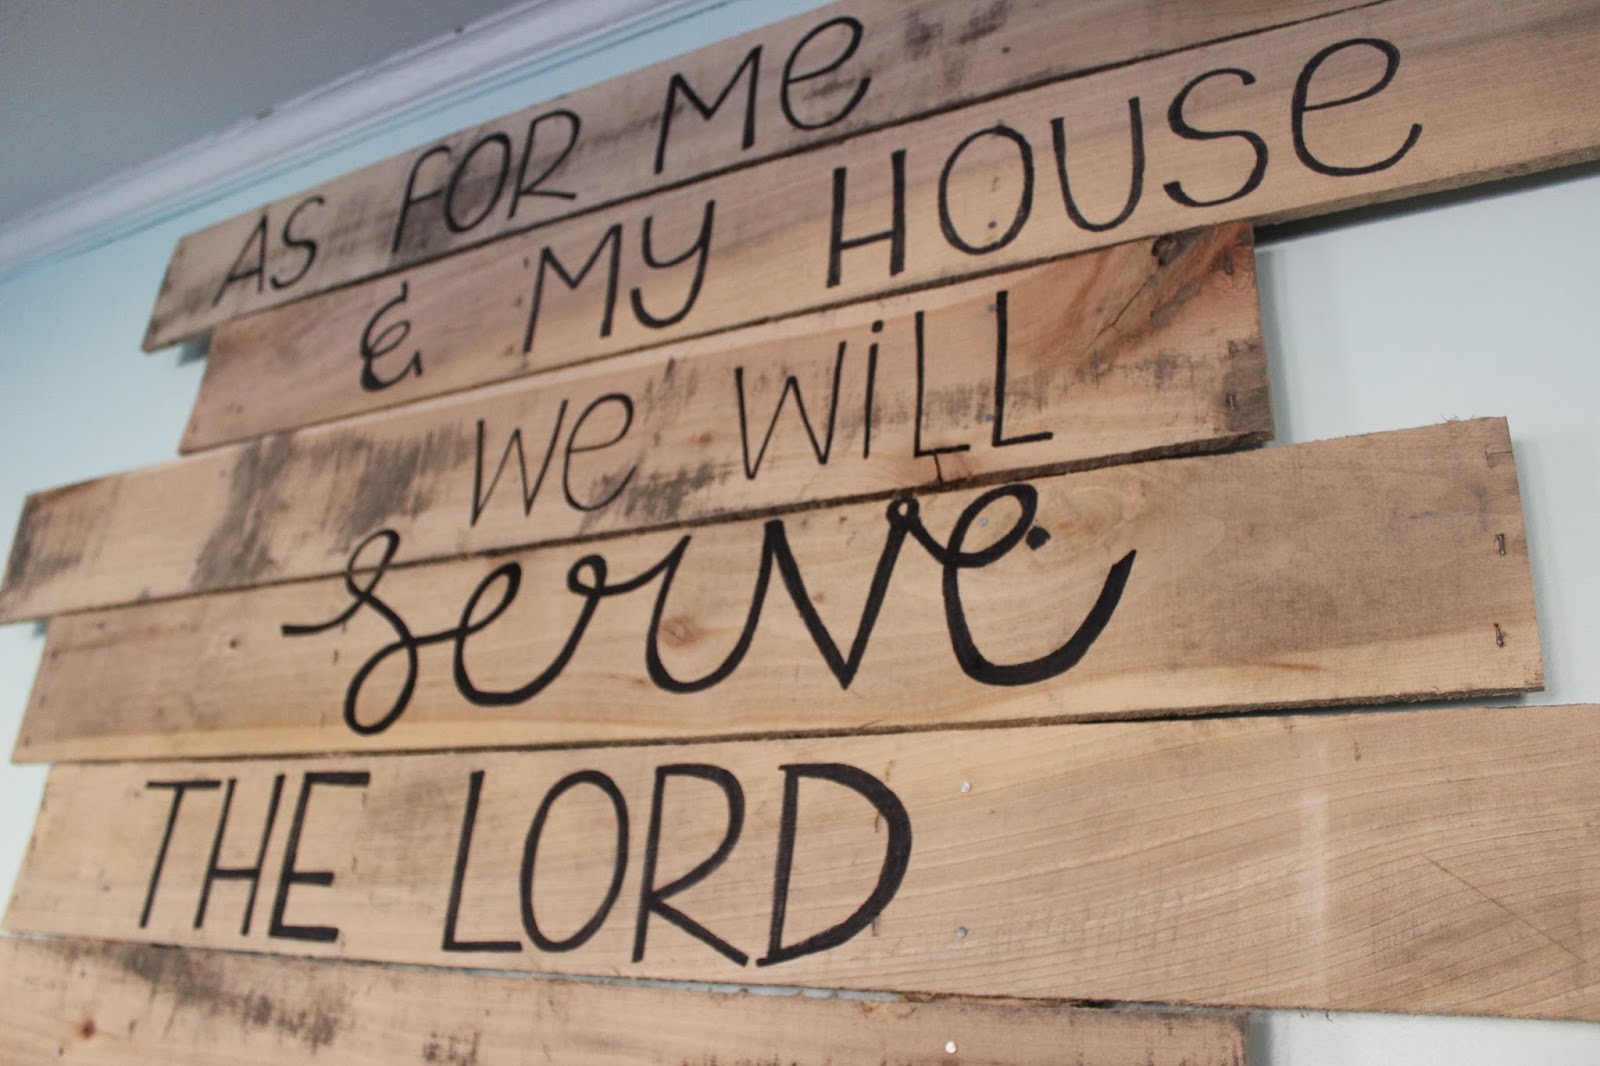 AS FOR Me
& MY HOUSe
We WiLL
serve
THE LORD